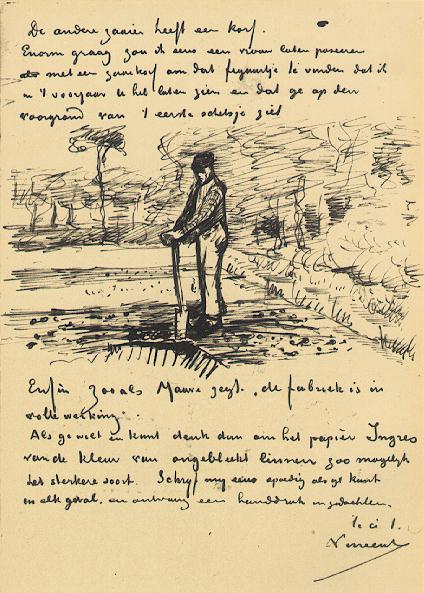 De andere zaaier heeft een korf.
Enorm graag zou ik eens een vrouw laten poseeren
met een zaaikorf om dat figuurtje te vinden dat ik
u 't voorjaar heb laten zien en dat ge op den
voorgrond van 't eerste schetsje ziet
Enfin zooals Mauve zegt, de fabriek is in
volle werking.
Als ge wilt en kunt denk dan om het papier Ingres
van de kleur van ongebleekt linnen zoo mogelijk
het sterkere soort. Schrijf mij eens spoedig als ge kunt
in elk geval, en ontvang een handdruk in gedachten.
t. à t.
Vincent